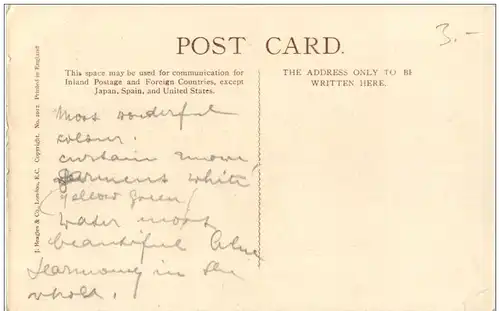 3.-
POST CARD.
This space may be used for communication for
Inland Postage and Foreign Countries, except
Japan, Spain, and United States.
THE ADDRESS ONLY TO BE
WRITTEN HERE.
J. Beagles & Co., London, E.C. Copyright. No. 2012. Printed in England
Most wonderful
colour.
curtain mauve
garments white
(yellow green)
water most
beautiful blue
Harmony in the
whole.